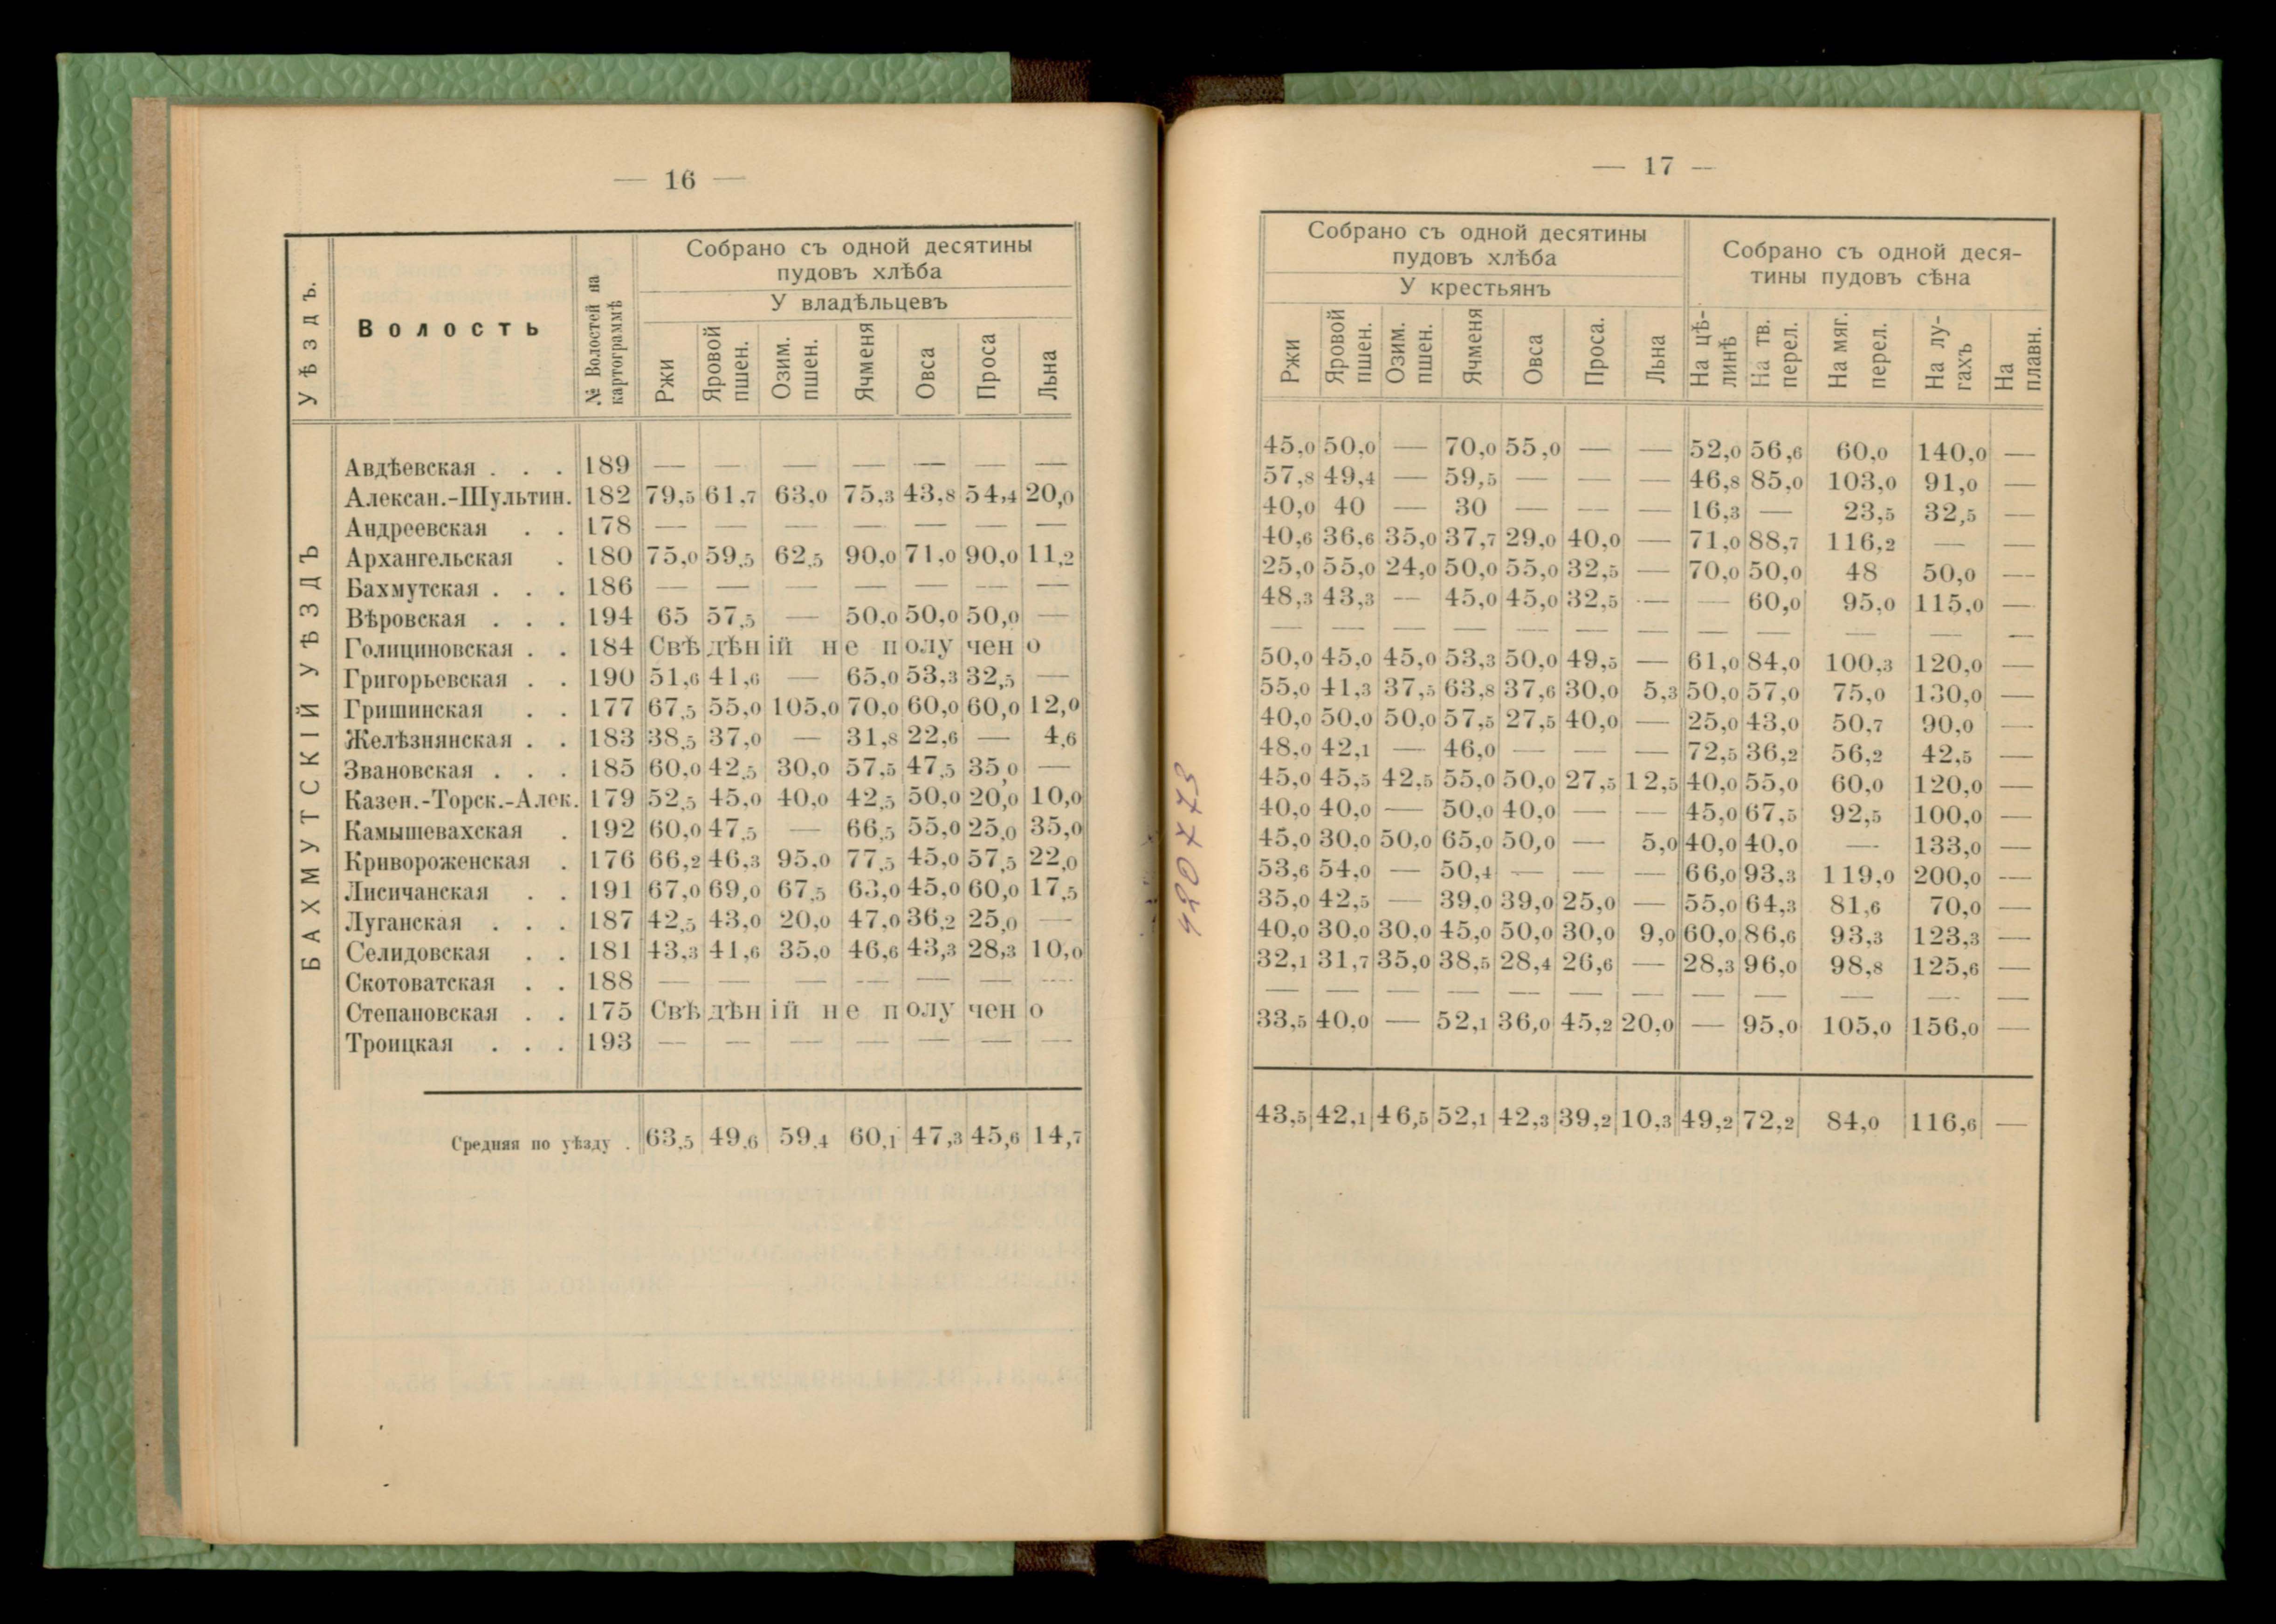 — 16 —
Уѣздъ.
Волость
№ Волостей на картограммѣ
Собрано съ одной десятины
пудовъ хлѣба
У владѣльцевъ
Ржи Яровой пшен. Озим. пшен. Ячменя Овса Проса Льна
БАХМУТСКІЙ УѢЗДЪ
Авдѣевская . . . 189 — — — — — — —
Алексан.-Шультин. 182 79,5 61,7 63,0 75,3 43,8 54,4 20,0
Андреевская . . 178 — — — — — — —
Архангельская . 180 75,0 59,5 62,5 90,0 71,0 90,0 11,2
Бахмутская . . . 186 — — — — — — —
Вѣровская . . . 194 65 57,5 — 50,0 50,0 50,0 —
Голициновская . . 184 Свѣдѣній не получено
Григорьевская . . 190 51,6 41,6 — 65,0 53,3 32,5 —
Гришинская . . 177 67,5 55,0 105,0 70,0 60,0 60,0 12,0
Желѣзнянская . . 183 38,5 37,0 — 31,8 22,6 — 4,6
Звановская . . . 185 60,0 42,5 30,0 57,5 47,5 35,0 —
Казен.-Торск.-Алек. 179 52,5 45,0 40,0 42,5 50,0 20,0 10,0
Камышевахская . 192 60,0 47,5 — 66,5 55,0 25,0 35,0
Кривороженская . 176 66,2 46,3 95,0 77,5 45,0 57,5 22,0
Лисичанская . . 191 67,0 69,0 67,5 63,0 45,0 60,0 17,5
Луганская . . . 187 42,5 43,0 20,0 47,0 36,2 25,0 —
Селидовская . . 181 43,3 41,6 35,0 46,6 43,3 28,3 10,0
Скотоватская . . 188 — — — — — — —
Степановская . . 175 Свѣдѣній не получено
Троицкая . . . 193 — — — — — — —
Средняя по уѣзду . 63,5 49,6 59,4 60,1 47,3 45,6 14,7
— 17 —
Собрано съ одной десятины
пудовъ хлѣба
У крестьянъ
Собрано съ одной деся-
тины пудовъ сѣна
Ржи Яровой пшен. Озим. пшен. Ячменя Овса Проса. Льна На цѣ-линѣ На тв. перел. На мяг. перел. На лу-гахъ На плавн.
45,0 50,0 — 70,0 55,0 — — 52,0 56,6 60,0 140,0 —
57,8 49,4 — 59,5 — — — 46,8 85,0 103,0 91,0 —
40,0 40 — 30 — — — 16,3 — 23,5 32,5 —
40,6 36,6 35,0 37,7 29,0 40,0 — 71,0 88,7 116,2 — —
25,0 55,0 24,0 50,0 55,0 32,5 — 70,0 50,0 48 50,0 —
48,3 43,3 — 45,0 45,0 32,5 — — 60,0 95,0 115,0 —
— — — — — — — — — — — —
50,0 45,0 45,0 53,3 50,0 49,5 — 61,0 84,0 100,3 120,0 —
55,0 41,3 37,5 63,8 37,6 30,0 5,3 50,0 57,0 75,0 130,0 —
40,0 50,0 50,0 57,5 27,5 40,0 — 25,0 43,0 50,7 90,0 —
48,0 42,1 — 46,0 — — — 72,5 36,2 56,2 42,5 —
45,0 45,5 42,5 55,0 50,0 27,5 12,5 40,0 55,0 60,0 120,0 —
40,0 40,0 — 50,0 40,0 — — 45,0 67,5 92,5 100,0 —
45,0 30,0 50,0 65,0 50,0 — 5,0 40,0 40,0 — 133,0 —
53,6 54,0 — 50,4 — — — 66,0 93,3 119,0 200,0 —
35,0 42,5 — 39,0 39,0 25,0 — 55,0 64,3 81,6 70,0 —
40,0 30,0 30,0 45,0 50,0 30,0 9,0 60,0 86,6 93,3 123,3 —
32,1 31,7 35,0 38,5 28,4 26,6 — 28,3 96,0 98,8 125,6 —
— — — — — — — — — — — —
33,5 40,0 — 52,1 36,0 45,2 20,0 — 95,0 105,0 156,0 —
43,5 42,1 46,5 52,1 42,3 39,2 10,3 49,2 72,2 84,0 116,6 —